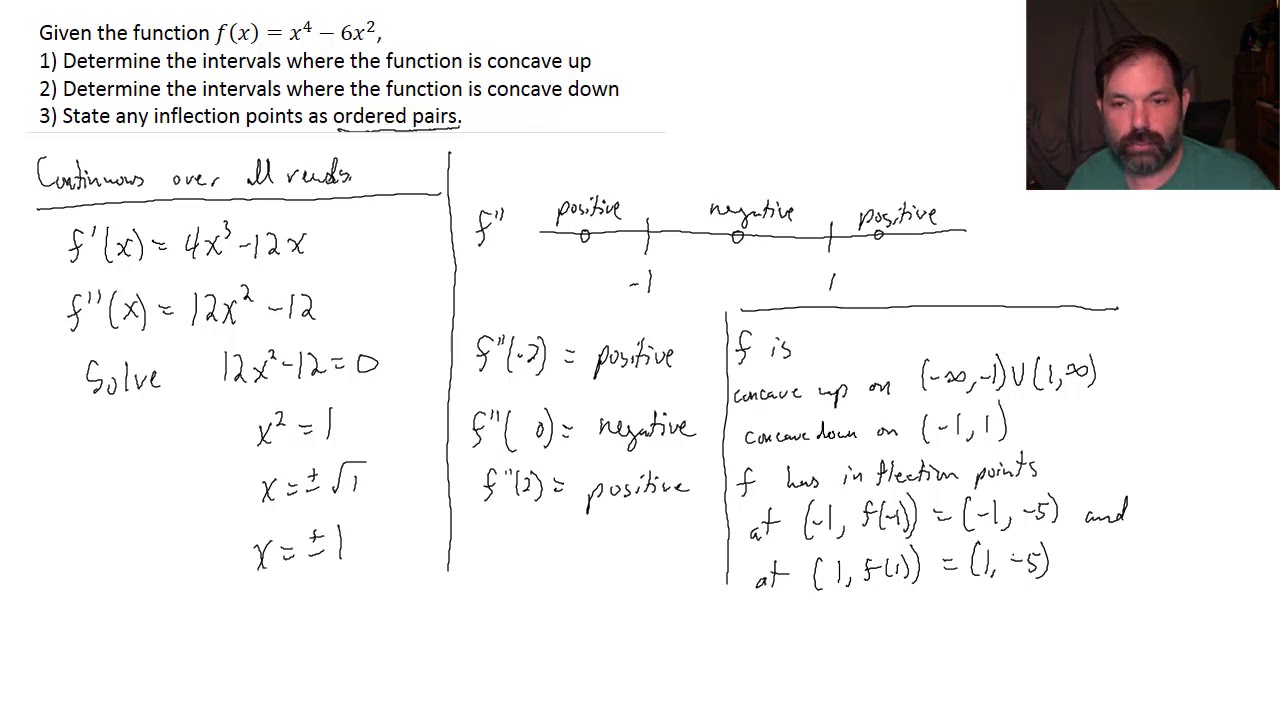 Given the function f(x) = x⁴ − 6x²,
1) Determine the intervals where the function is concave up
2) Determine the intervals where the function is concave down
3) State any inflection points as ordered pairs.
Continuous over all reals
f'(x) = 4x³ -12x
f''(x) = 12x² -12
Solve 12x²-12=0
x² = 1
x = ± √1
x = ± 1
positive negative positive
f''
-1 1
f''(-2) = positive
f''( 0) = negative
f''(2) = positive
f is
concave up on (-∞,-1)∪(1,∞)
concave down on (-1,1)
f has inflection points
at (-1, f(-1)) = (-1, -5) and
at (1, f(1)) = (1, -5)